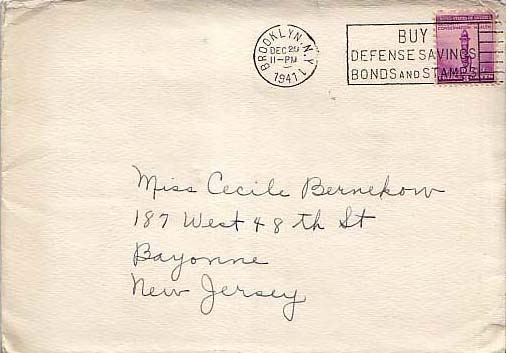 BROOKLYN, N.Y.
DEC 29
11-PM
1941
BUY
DEFENSE SAVINGS
BONDS AND STAMPS
Miss Cecile Bernekow
187 West 48th St
Bayonne
New Jersey